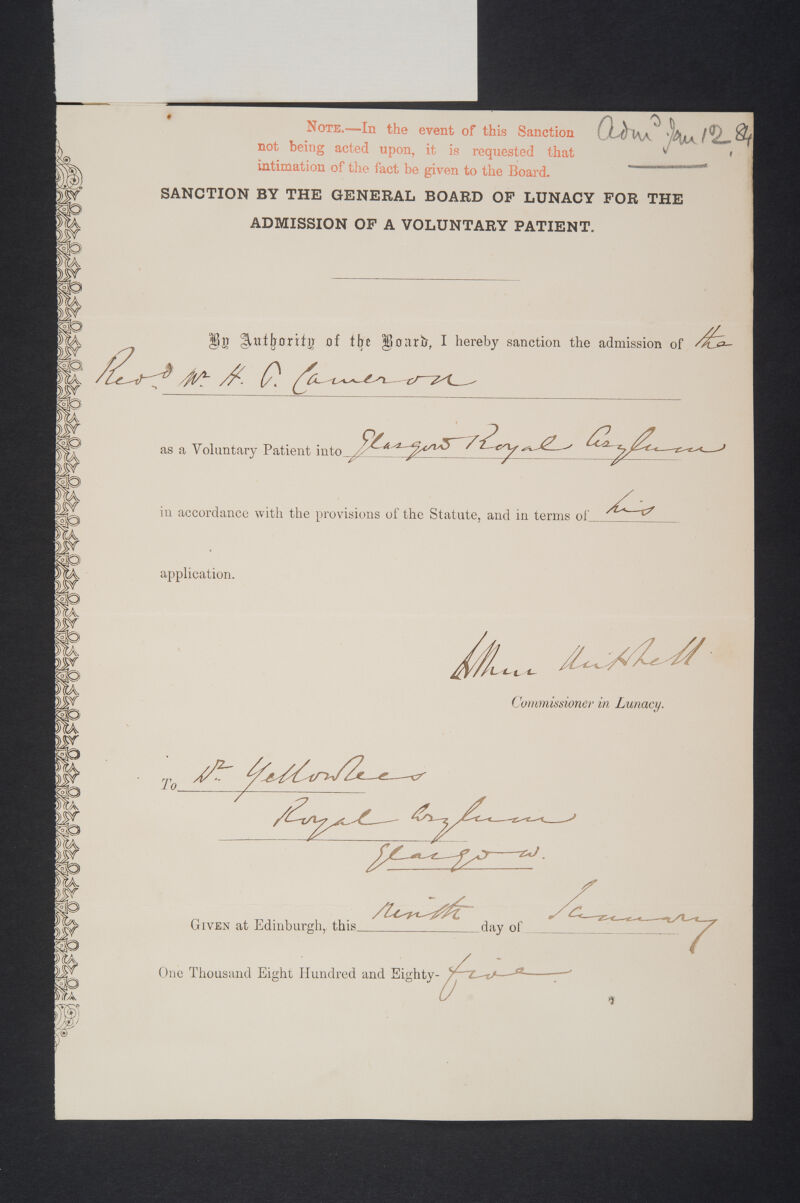 NOTE.—In the event of this Sanction
not being acted upon, it is requested that
intimation of the fact be given to the Board.
Admd Jan 12. 84
SANCTION BY THE GENERAL BOARD OF LUNACY FOR THE
ADMISSION OF A VOLUNTARY PATIENT.
By Authority of the Board, I hereby sanction the admission of the
Revd Wm H. P. Cameron
as a Voluntary Patient into Glasgow Royal Asylum
in accordance with the provisions of the Statute, and in terms of his
application.
Arthur Mitchell
Commissioner in Lunacy.
To Dr Yellowlees
Royal Asylum
Glasgow.
GIVEN at Edinburgh, this ninth day of January
One Thousand Eight Hundred and Eighty-five